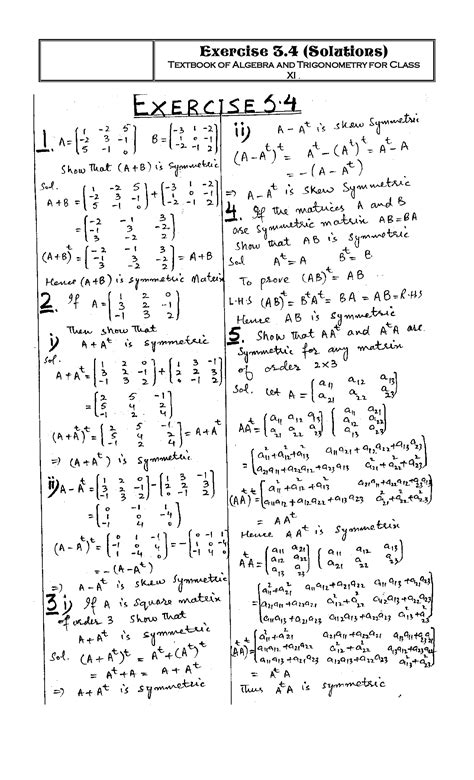 Exercise 3.4 (Solutions)
TEXTBOOK OF ALGEBRA AND TRIGONOMETRY FOR CLASS
XI .
EXERCISE 3.4
1. A = [1 -2 5; -2 3 -1; 5 -1 0] B = [-3 1 -2; 1 0 -1; -2 -1 2]
Show that (A+B) is Symmetric
Sol.
A+B = [1 -2 5; -2 3 -1; 5 -1 0] + [-3 1 -2; 1 0 -1; -2 -1 2]
= [-2 -1 3; -1 3 -2; 3 -2 2]
(A+B)^t = [-2 -1 3; -1 3 -2; 3 -2 2] = A+B
Hence (A+B) is symmetric Matrix
2. If A = [1 2 0; 3 2 -1; -1 3 2]
Then show that
i) A+A^t is symmetric
Sol.
A+A^t = [1 2 0; 3 2 -1; -1 3 2] + [1 3 -1; 2 2 3; 0 -1 2]
= [2 5 -1; 5 4 2; -1 2 4]
(A+A^t)^t = [2 5 -1; 5 4 2; -1 2 4] = A+A^t
⇒ (A+A^t) is Symmetric
ii) A-A^t = [1 2 0; 3 2 -1; -1 3 2] - [1 3 -1; 2 2 3; 0 -1 2]
= [0 -1 1; 1 0 -4; -1 4 0]
(A-A^t)^t = [0 1 -1; -1 0 4; 1 -4 0] = -[0 -1 1; 1 0 -4; -1 4 0]
= -(A-A^t)
⇒ A-A^t is skew Symmetric
3. i) If A is square matrix
of order 3 show that
A+A^t is symmetric
Sol. (A+A^t)^t = A^t+(A^t)^t
= A^t+A = A+A^t
⇒ A+A^t is symmetric
ii) A-A^t is skew Symmetric
(A-A^t)^t = A^t-(A^t)^t = A^t-A
= -(A-A^t)
⇒ A-A^t is skew Symmetric
4. If the matrices A and B
are symmetric matrix AB=BA
show that AB is Symmetric
Sol A^t=A B^t=B
To prove (AB)^t = AB
L.H.S (AB)^t = B^tA^t = BA = AB = R.H.S
Hence AB is symmetric
5. Show that AA^t and A^tA are
Symmetric for any matrix
of order 2x3
Sol. Let A = [a11 a12 a13; a21 a22 a23]
AA^t = [a11 a12 a13; a21 a22 a23] [a11 a21; a12 a22; a13 a23]
= [a11²+a12²+a13² a11a21+a12a22+a13a23; a21a11+a22a12+a23a13 a21²+a22²+a23²]
(AA^t)^t = [a11²+a12²+a13² a21a11+a22a12+a23a13; a11a21+a12a22+a13a23 a21²+a22²+a23²]
= AA^t
Hence AA^t is Symmetric
A^tA = [a11 a21; a12 a22; a13 a23] [a11 a12 a13; a21 a22 a23]
= A^tA
Thus A^tA is symmetric